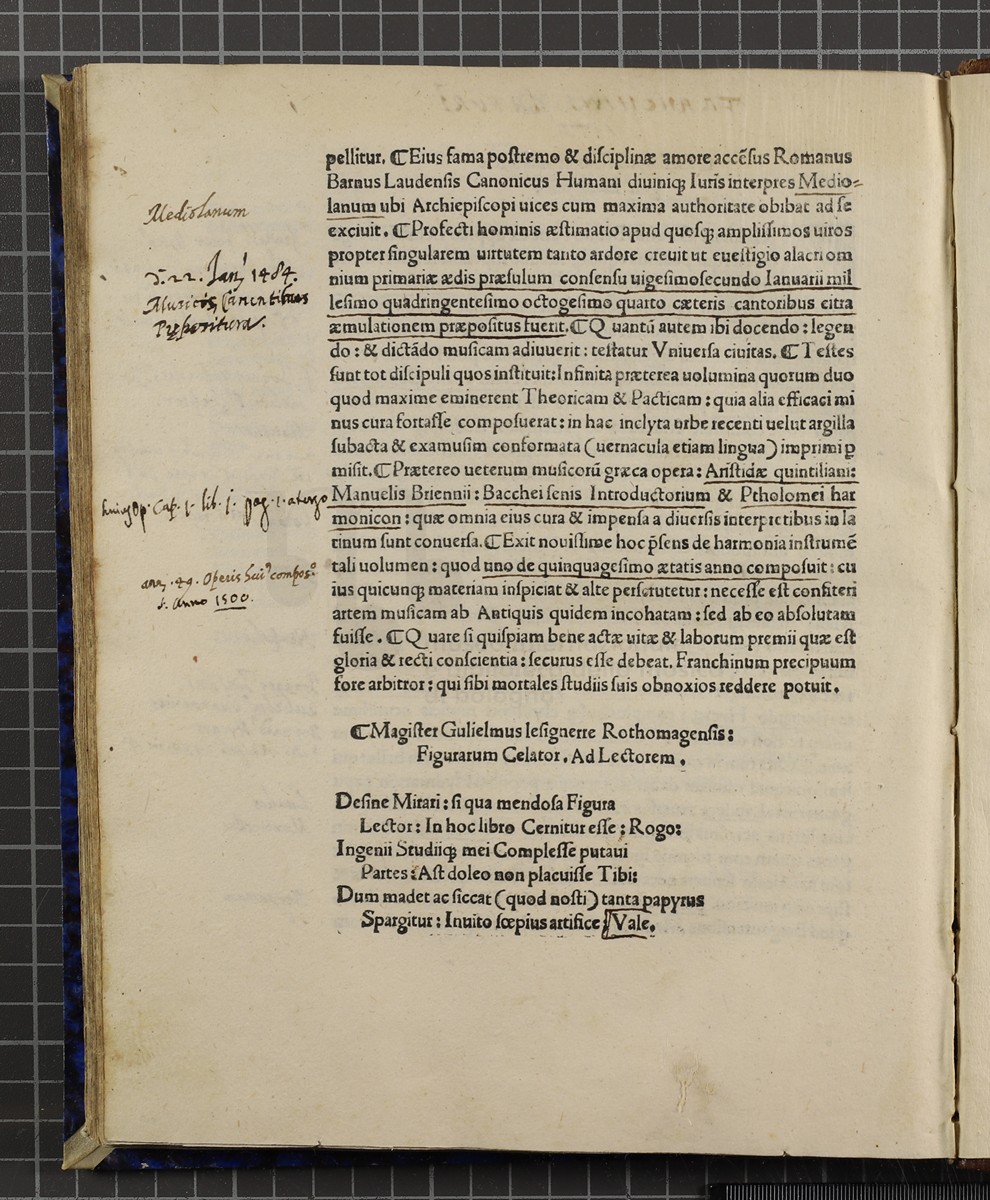 pellitur. ¶Eius fama postremo & disciplinæ amore accẽsus Romanus
Barnus Laudensis Canonicus Humani diuiniqꝫ Iuris interpres Medio-
lanum ubi Archiepiscopi uices cum maxima authoritate obibat ad se
exciuit. ¶Profecti hominis æstimatio apud quosqꝫ amplissimos uiros
propter singularem uirtutem tanto ardore creuit ut euestigio alacri om
nium primariæ ædis præsulum consensu uigesimosecundo Ianuarii mil
lesimo quadringentesimo octogesimo quarto cæteris cantoribus citra
æmulationem præpositus fuerit. ¶Quantũ autem ibi docendo: legen
do: & dictãdo musicam adiuuerit: testatur Vniuersa ciuitas. ¶Testes
sunt tot discipuli quos instituit: Infinita præterea uolumina quorum duo
quod maxime eminerent Theoricam & Pacticam: quia alia efficaci mi
nus cura fortasse composuerat: in hac inclyta urbe recenti uelut argilla
subacta & examusim conformata (uernacula etiam lingua) imprimi ꝑ
misit. ¶Prætereo ueterum musicorũ græca opera: Aristidæ quintiliani:
Manuelis Briennii: Bacchei senis Introductorium & Ptholomei har
monicon: quæ omnia eius cura & impensa a diuersis interpretibus in la
tinum sunt conuersa. ¶Exit nouissime hoc p̃sens de harmonia instrumẽ
tali uolumen: quod uno de quinquagesimo ætatis anno composuit: cu
ius quicunqꝫ materiam inspiciat & alte perscrutetur: necesse est confiteri
artem musicam ab Antiquis quidem incohatam: sed ab eo absolutam
fuisse. ¶Quare si quispiam bene actæ uitæ & laborum premii quæ est
gloria & recti conscientia: securus esse debeat. Franchinum precipuum
fore arbitror: qui sibi mortales studiis suis obnoxios reddere potuit.
¶Magister Gulielmus lesignerre Rothomagensis:
Figurarum Celator. Ad Lectorem.
Desine Mirari: si qua mendosa Figura
Lector: In hoc libro Cernitur esse: Rogo:
Ingenii Studiiqꝫ mei Complesse putaui
Partes: Ast doleo non placuisse Tibi:
Dum madet ac siccat (quod nosti) tanta papyrus
Spargitur: Inuito sœpius artifice Vale.
Mediolanum
22. Janˀ 1484.
Musicis Canentibus
Præpositura.
Cap. 1. lib. 1. pag. 1. a tergo
ann. 49. Operis huiˀ compos.
s. Anno 1500.